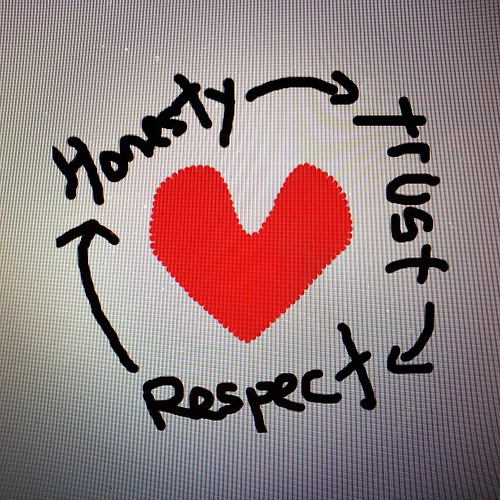 Honesty
Trust
Respect